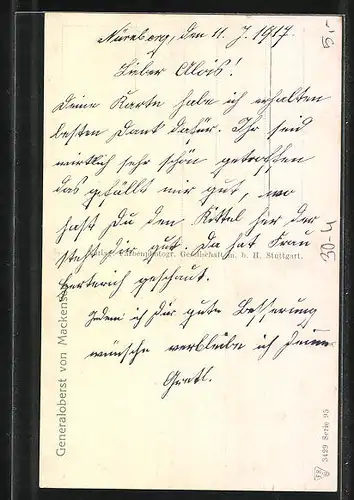 Nürnberg, den 11. J. 1917.
Lieber Alois!
Deine Karte habe ich erhalten
besten Dank dafür. Ihr seid
wirklich sehr schön getroffen
das gefällt mir gut, wo
hast Du den Kittel her der
steht Dir gut. Da hat Frau
geschaut.
Indem ich Dir gute Besserung
wünsche verbleibe ich Deine
Gretl.
Generaloberst von Mackensen
Gesellschaft m. b. H. Stuttgart.
3429 Serie 95
5,-
30.4